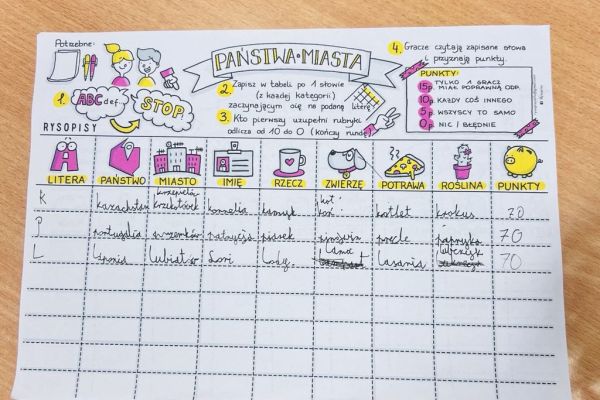 Potrzebne:
PAŃSTWA·MIASTA
1.
ABC def
STOP
2. Zapisz w tabeli po 1 słowie
(z każdej kategorii)
zaczynającym się na podaną literę
3. Kto pierwszy uzupełni rubryki
odlicza od 10 do 0 (kończy rundę)
4. Gracze czytają zapisane słowa
i przyznają punkty.
PUNKTY:
15p. TYLKO 1 GRACZ MIAŁ POPRAWNĄ ODP.
10p. KAŻDY COŚ INNEGO
5p. WSZYSCY TO SAMO
0p. NIC / BŁĘDNIE
RYSOPISY
LITERA PAŃSTWO MIASTO IMIĘ RZECZ ZWIERZĘ POTRAWA ROŚLINA PUNKTY
K kazachstan kornelia kot kotlet krokus 70
P portugalia patrycja piasek papryka 70
L Laponia Lori Lody Lama Lasania 70